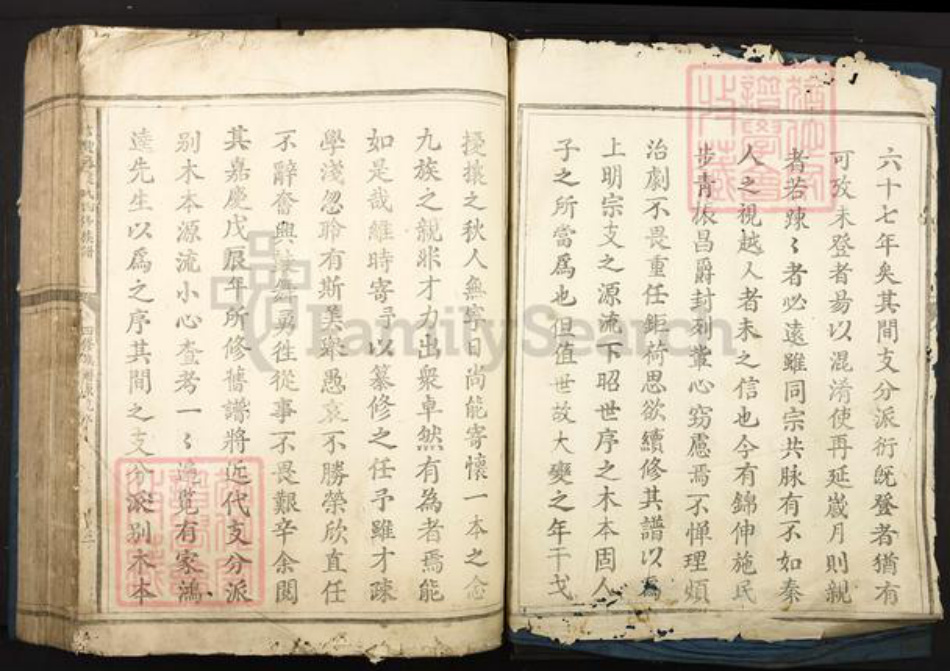 六十七年矣其間支分派衍旣登者猶有
可攷未登者易以混淆使再延嵗月則親
者若踈〻者必遠雖同宗共脉有不如秦
人之視越人者未之信也今有錦伸施民
步青振昌爵封刻軰心窃慮焉不憚理煩
治劇不畏重任鉅荷思欲續修其譜以爲
上明宗支之源流下昭世序之木本固人
子之所當爲也但值世故大變之年干戈
擾攘之秋人無寧日尚能寄懷一本之念
九族之親非才力出衆卓然有為者焉能
如是哉維時寄予以纂修之任予雖才疎
學淺忽聆有斯美舉愚衷不勝榮欣直任
不辭奮興鼓舞勇徃從事不畏艱辛余閱
其嘉慶戊辰年所修舊譜將近代支分派
别木本源流小心查考一〻遍覧有家鴻
逵先生以爲之序其間之支分派别木本
FamilySearch